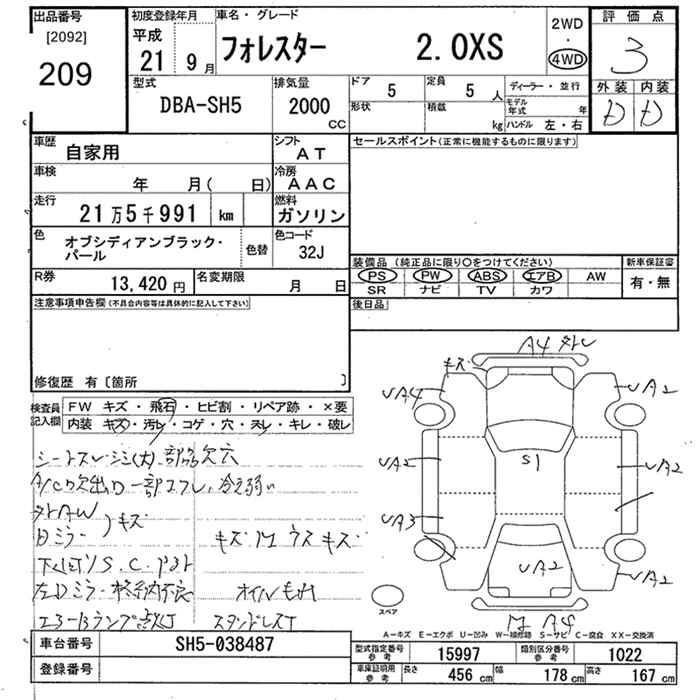 出品番号 初度登録年月 車名・グレード 2WD 評価点
[2092] 平成 フォレスター 2.0XS ・ 3
209 21 9月 4WD
型式 排気量 ドア 定員 ディーラー・並行 外装 内装
DBA-SH5 2000 CC 5 5人 モデル年式 年 D D
形状 積載 kg ハンドル 左・右
車歴 自家用 シフト AT セールスポイント(正常に機能するものに限ります)
車検 年 月( 日) 冷房 AAC
走行 21万5千991 km 燃料 ガソリン
色 オブシディアンブラック・パール 色替 色コード 32J
装備品(純正品に限り〇をつけてください) 新車保証書
R券 13,420円 名変期限 月 日 PS PW ABS エアB AW 有・無
SR ナビ TV カワ
注意事項申告欄(不具合内容等は具体的に記入して下さい) 後日品
修復歴 有〔箇所 〕
検査員記入欄 FW キズ・飛石・ヒビ割・リペア跡・×要
内装 キズ・汚レ・コゲ・穴・スレ・キレ・破レ
A4
キズ
UA4 UA2
UA2 S1 UA2
UA3
UA2 UA2
A4
シートスレ・シミ(大) 部品欠穴
A/C吹出口一部ズレ、冷え弱い
外AW キズ
日ミラー
キズ ウスキズ
下回りS.C.
左Dミラー格納不良 オイルもれ
エアーBランプ点灯 スタンドレスT
スペア
A-キズ E-エクボ U-凹み W-補修跡 S-サビ C-腐食 XX-交換済
車台番号 SH5-038487
登録番号
型式指定番号 参考 15997 類別区分番号 参考 1022
車庫証明用 参考 長さ 456 cm 幅 178 cm 高さ 167 cm